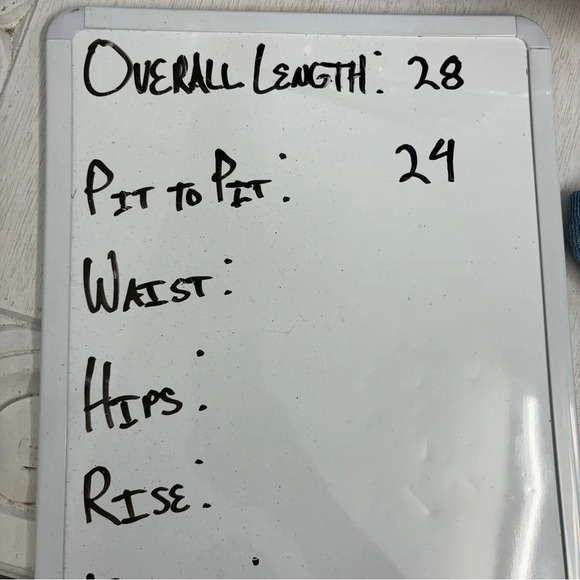 OVERALL LENGTH: 28
PIT TO PIT: 24
WAIST:
HIPS:
RISE: